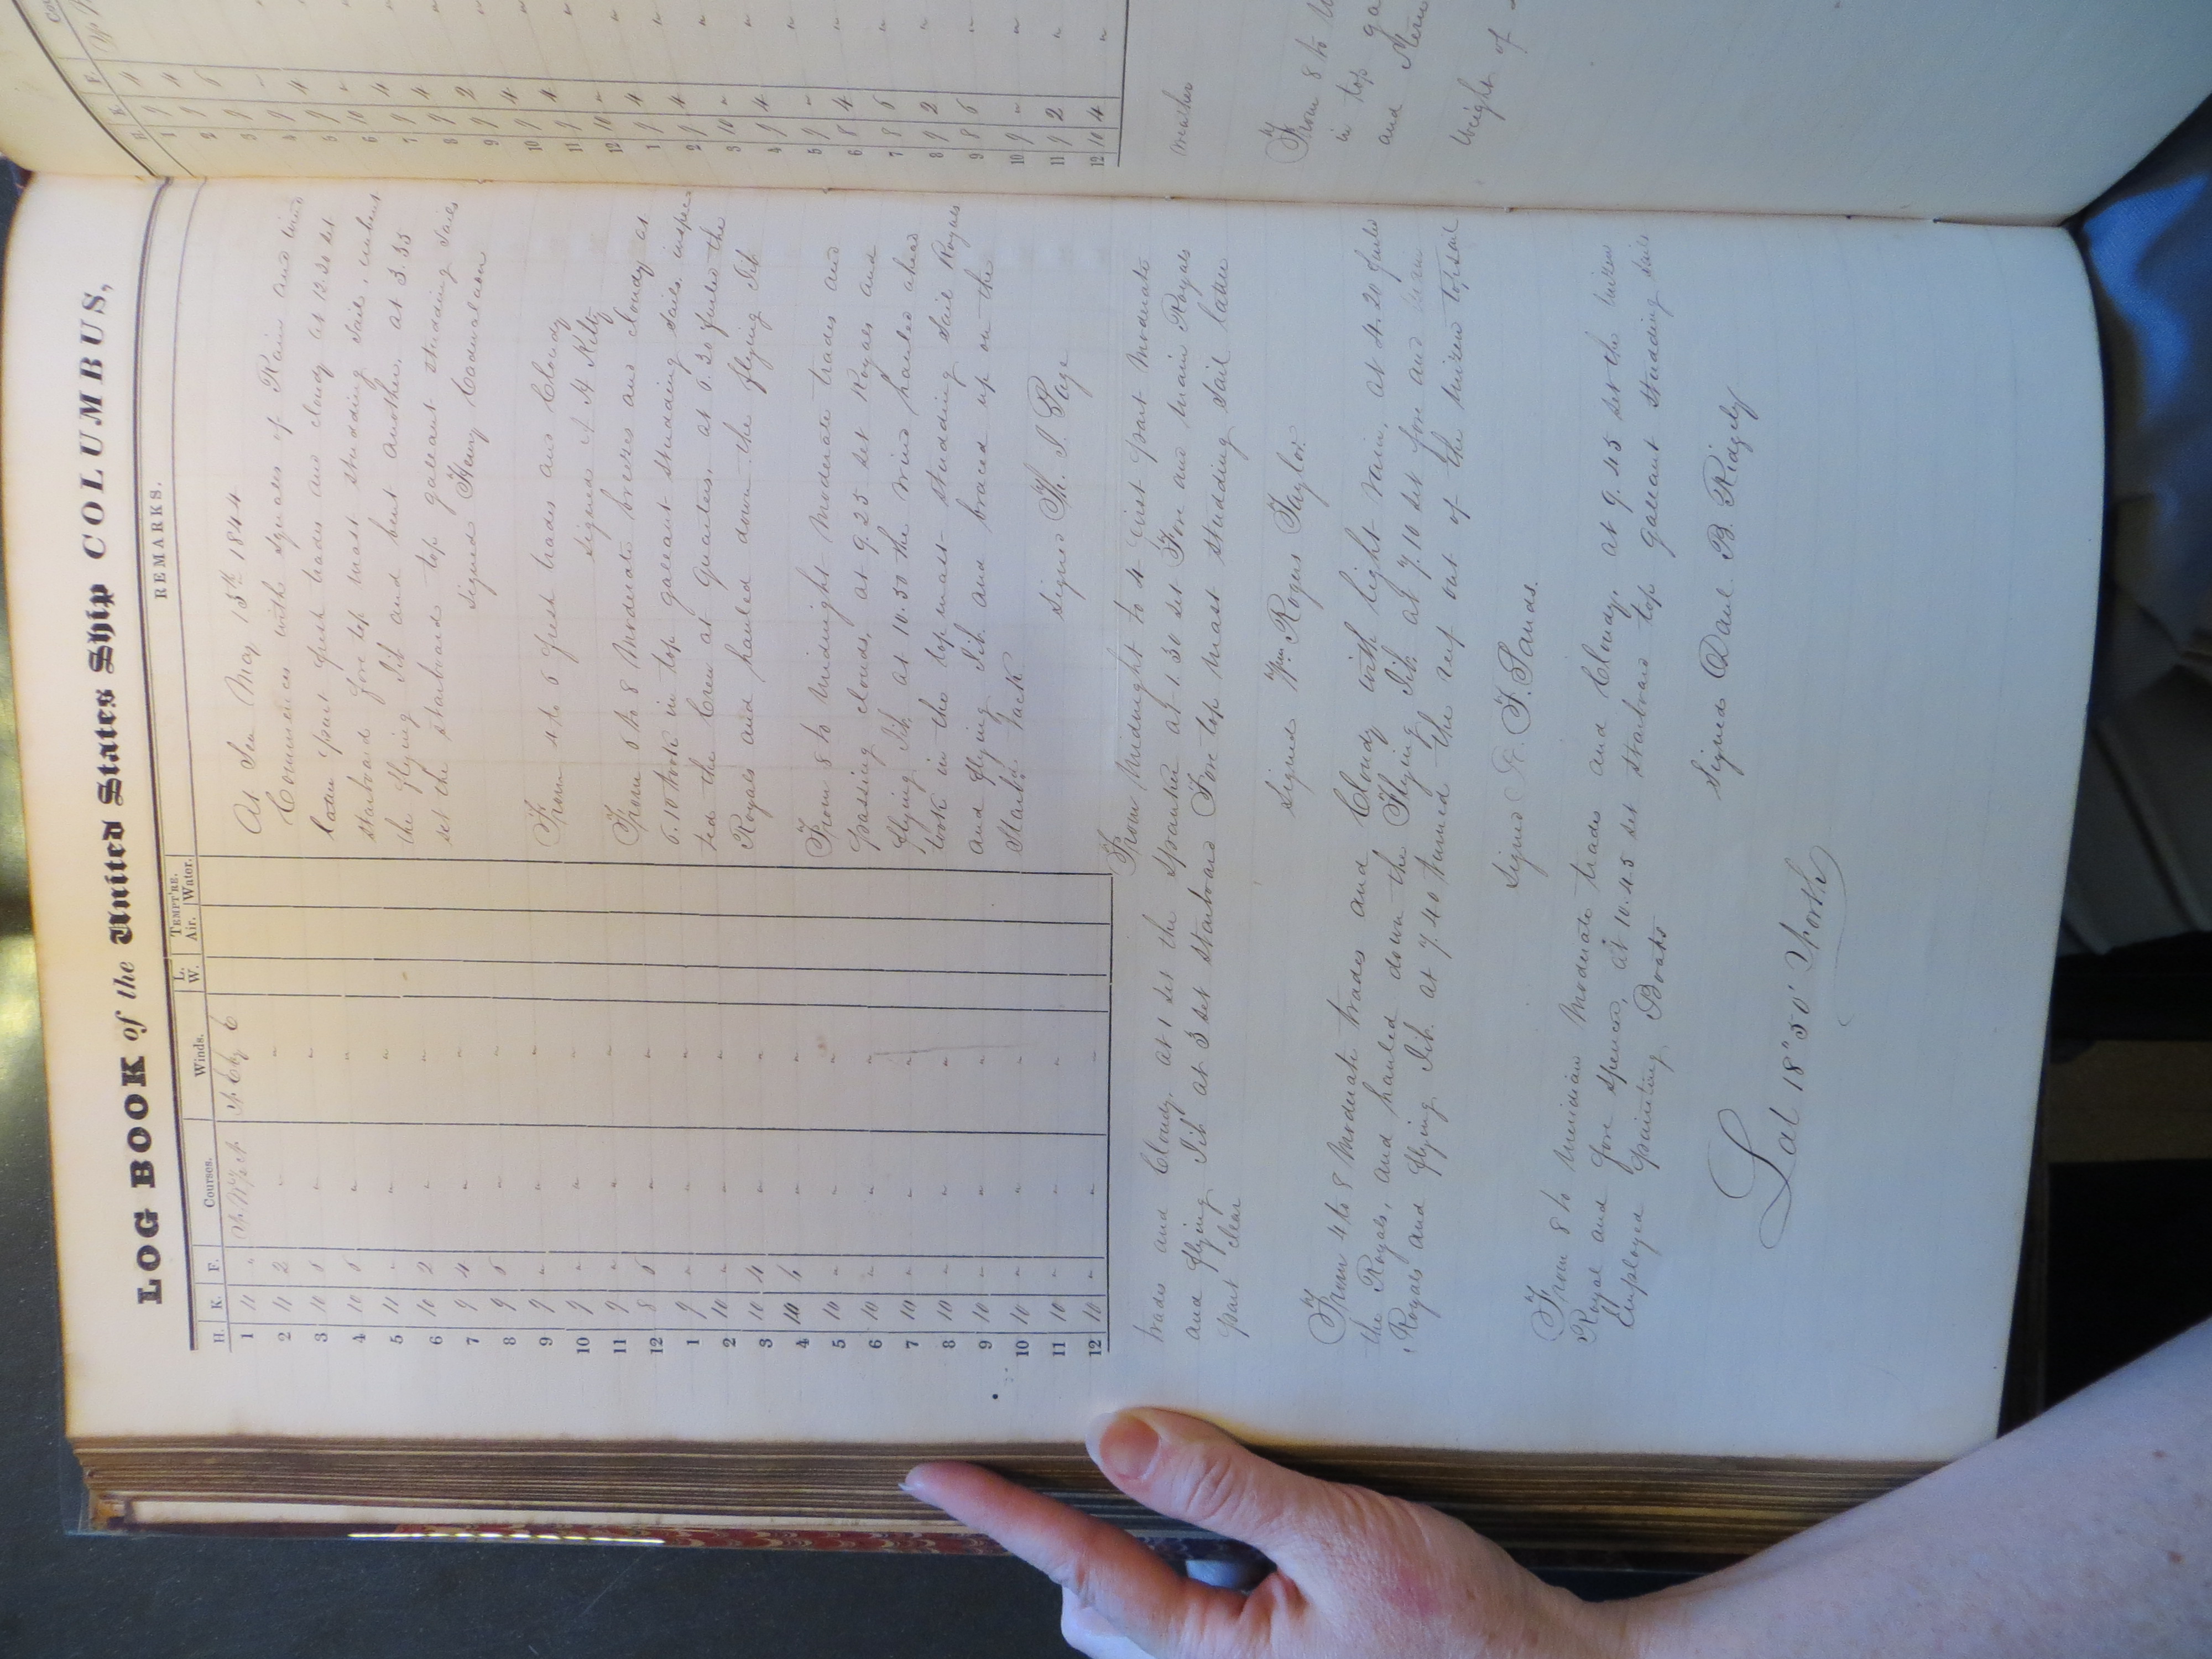 LOG BOOK of the United States Ship COLUMBUS,
H. K. F. Courses. Winds. L. W. TEMPT'RE. Air. Water. REMARKS.
1 11 " "
2 11 2 " "
3 10 6 " "
4 10 6 " "
5 11 " " "
6 10 2 " "
7 9 4 " "
8 9 6 " "
9 9 " " "
10 9 " " "
11 9 " " "
12 8 6 " "
1 9 " " "
2 10 " " "
3 10 4 " "
4 10 6 " "
5 10 " " "
6 10 " " "
7 10 " " "
8 10 " " "
9 10 " " "
10 10 " " "
11 10 " " "
12 10 " " "
At Sea May 15th 1844
Commences with squalls of Rain and wind
latter part fresh trades and cloudy at 12.30 set
starboard fore top mast studding sail, unbent
the flying Jib and bent another. at 3.35
set the starboard top gallant studding sails
Signed Henry Cadwalader
From 4 to 6 fresh trades and Cloudy
Signed A H Kilty
From 6 to 8 Moderate breezes and cloudy at
6.10 took in top gallant studding sails. inspec
ted the Crew at quarters. at 6.30 furled the
Royals and hauled down the flying Jib
From 8 to Midnight Moderate trades and
passing clouds, at 9.25 set Royals and
flying Jib, at 10.50 the wind hauled ahead
took in the top mast studding sail Royals
and flying Jib and braced up on the
Starbd. Tack
Signed Th. J. Page
From Midnight to 4 first part Moderate
trades and Cloudy. at 1 set the Spanker at 1.30 set Fore and Main Royals
and flying Jib at 3 set starboard Fore top mast studding sail latter
part clear
Signed Wm. Rogers Taylor.
From 4 to 8 Moderate trades and Cloudy with light rain, at 4.20 furled
the Royals, and hauled down the Flying Jib at 7.10 set fore and main
Royals and flying Jib. at 7.40 turned the reef out of the mizen topsail
Signed F. Sands.
From 8 to Meridian Moderate trades and Cloudy, at 9.45 set the mizen
Royal and fore spencer, at 10.45 set starboard top gallant studding sails
Employed painting Boats
Signed Danl. B. Ridgely
Lat 18° 50' North
H. K. F.
1 9 4
2 9 4
3 9 6
4 9 "
5 9 4
6 10 "
7 9 4
8 9 4
9 9 2
10 9 4
11 9 4
12 10 "
1 9 4
2 9 4
3 10 "
4 9 4
5 9 "
6 8 4
7 8 6
8 9 2
9 8 6
10 9 "
11 9 2
12 10 4
weather
From 8 to
in top
and
weight of